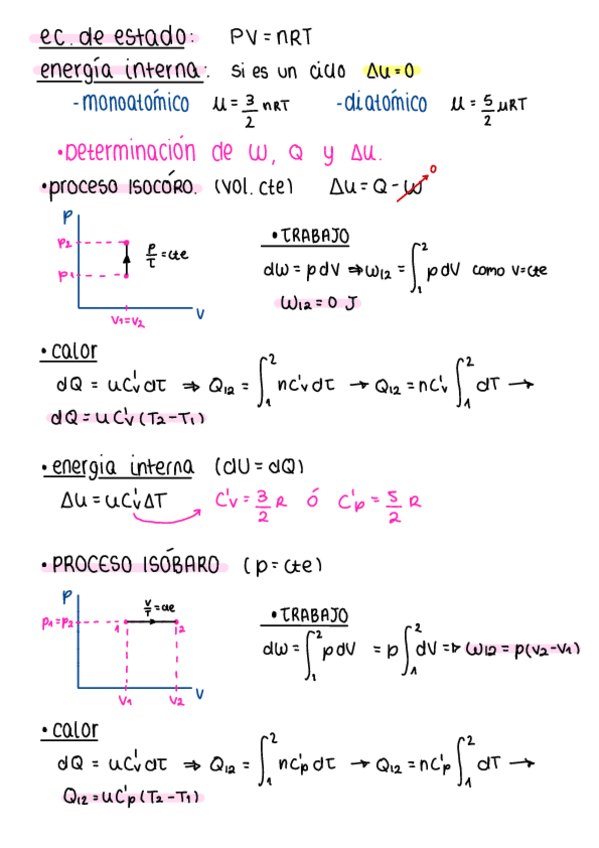 ec. de estado: PV = nRT
energía interna: si es un ciclo Δu = 0
- monoatómico u = 3/2 nRT - diatómico u = 5/2 uRT
• Determinación de W, Q y Δu.
• proceso ISOCÓRO. (vol. cte) Δu = Q - W 0
P
P2
P1
P/T = cte
V1=V2
V
• TRABAJO
dW = p dV ⇒ W12 = ∫₁² p dV como V=cte
W12 = 0 J
• calor
dQ = u C'v dT ⇒ Q12 = ∫₁² n C'v dT → Q12 = n C'v ∫₁² dT →
dQ = u C'v (T2 - T1)
• energia interna (dU = dQ)
Δu = u C'v ΔT C'v = 3/2 R ó C'p = 5/2 R
• PROCESO ISÓBARO (p = cte)
P
P1=P2
1
V/T = cte
2
V1
V2
V
• TRABAJO
dW = ∫₁² p dV = p ∫₁² dV ⇒ W12 = p(V2 - V1)
• calor
dQ = u C'v dT ⇒ Q12 = ∫₁² n C'p dT → Q12 = n C'p ∫₁² dT →
Q12 = u C'p (T2 - T1)